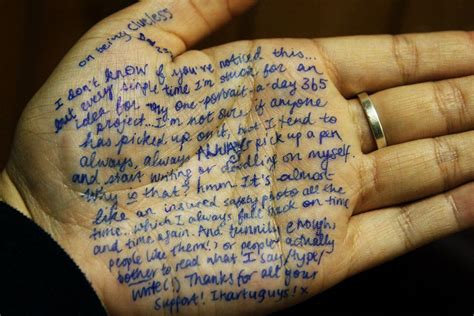 on being clueless
I don't know if you've noticed this...
but every single time I'm stuck for an
idea for my one portrait a day 365
project... I'm not sure if anyone
has picked up on it, but I tend to
always, always ALWAYS pick up a pen
and start writing or doodling on myself.
Why is that? hmm. It's almost
like an insured safety photo all the
time... which I always fall back on time
and time again. And funnily enough,
people like them! :) or people actually
bother to read what I say/type/
write (!) Thanks for all your
support! I hart u guys! x